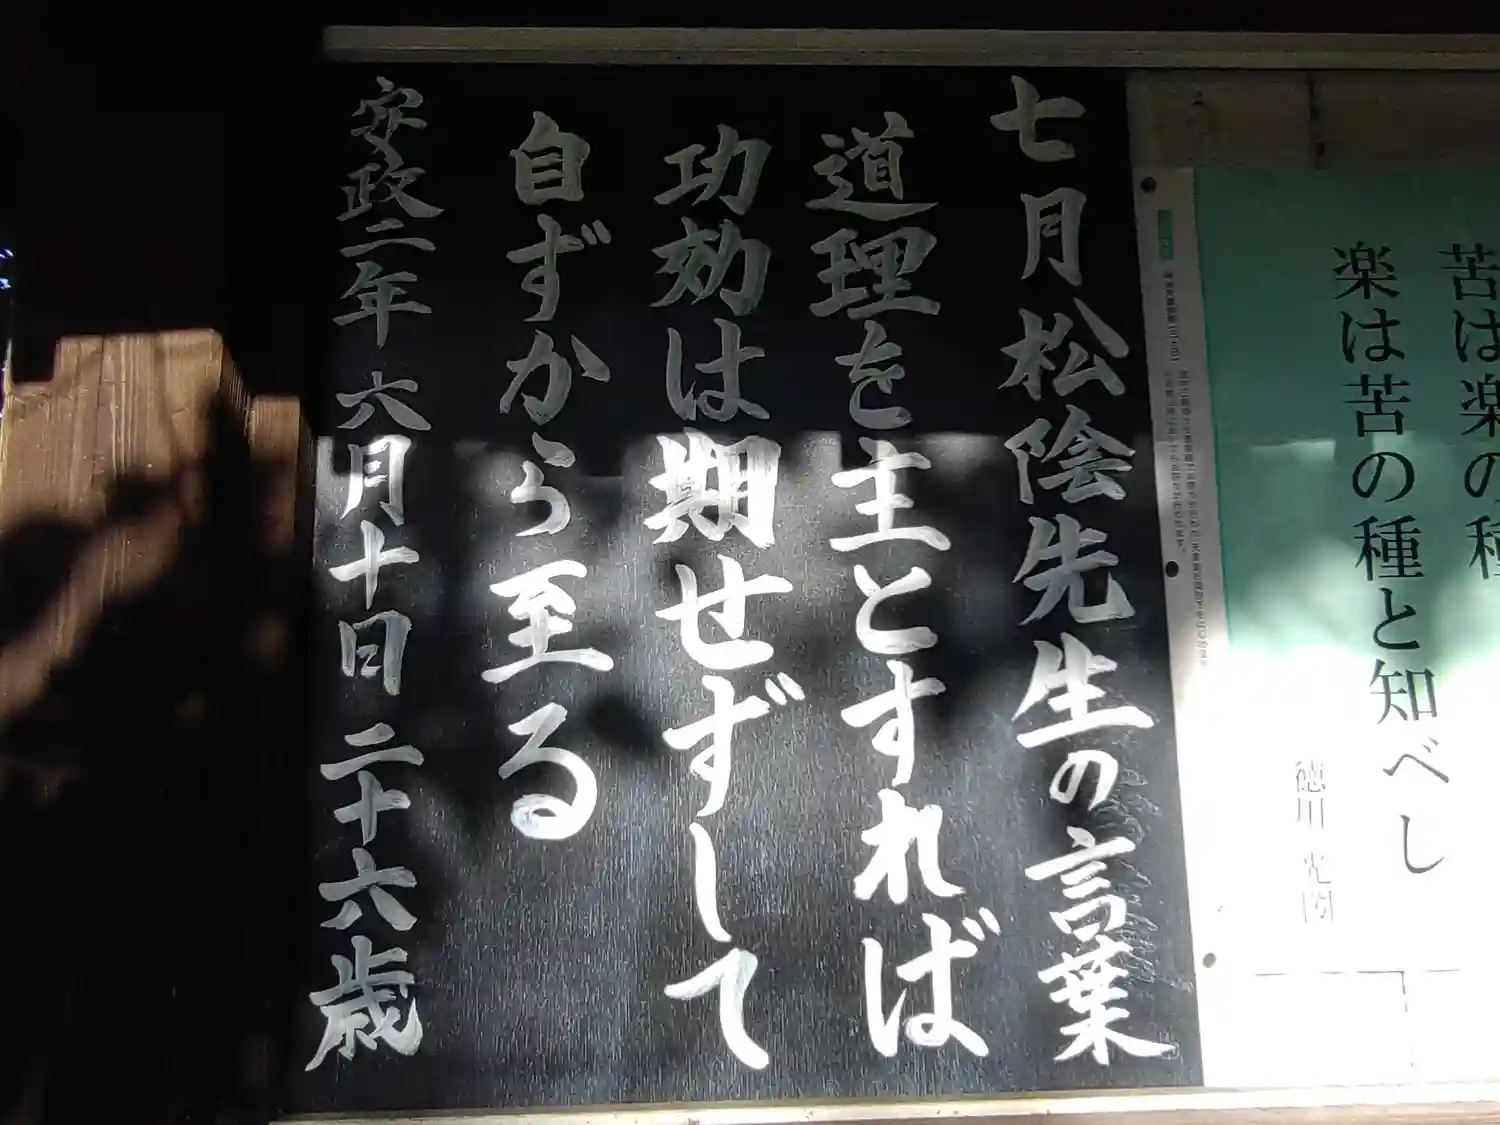 七月松陰先生の言葉
道理を主とすれば
功効は期せずして
自ずから至る
安政二年 六月十日 二十六歳
苦は楽の種
楽は苦の種と知べし
徳川 光圀